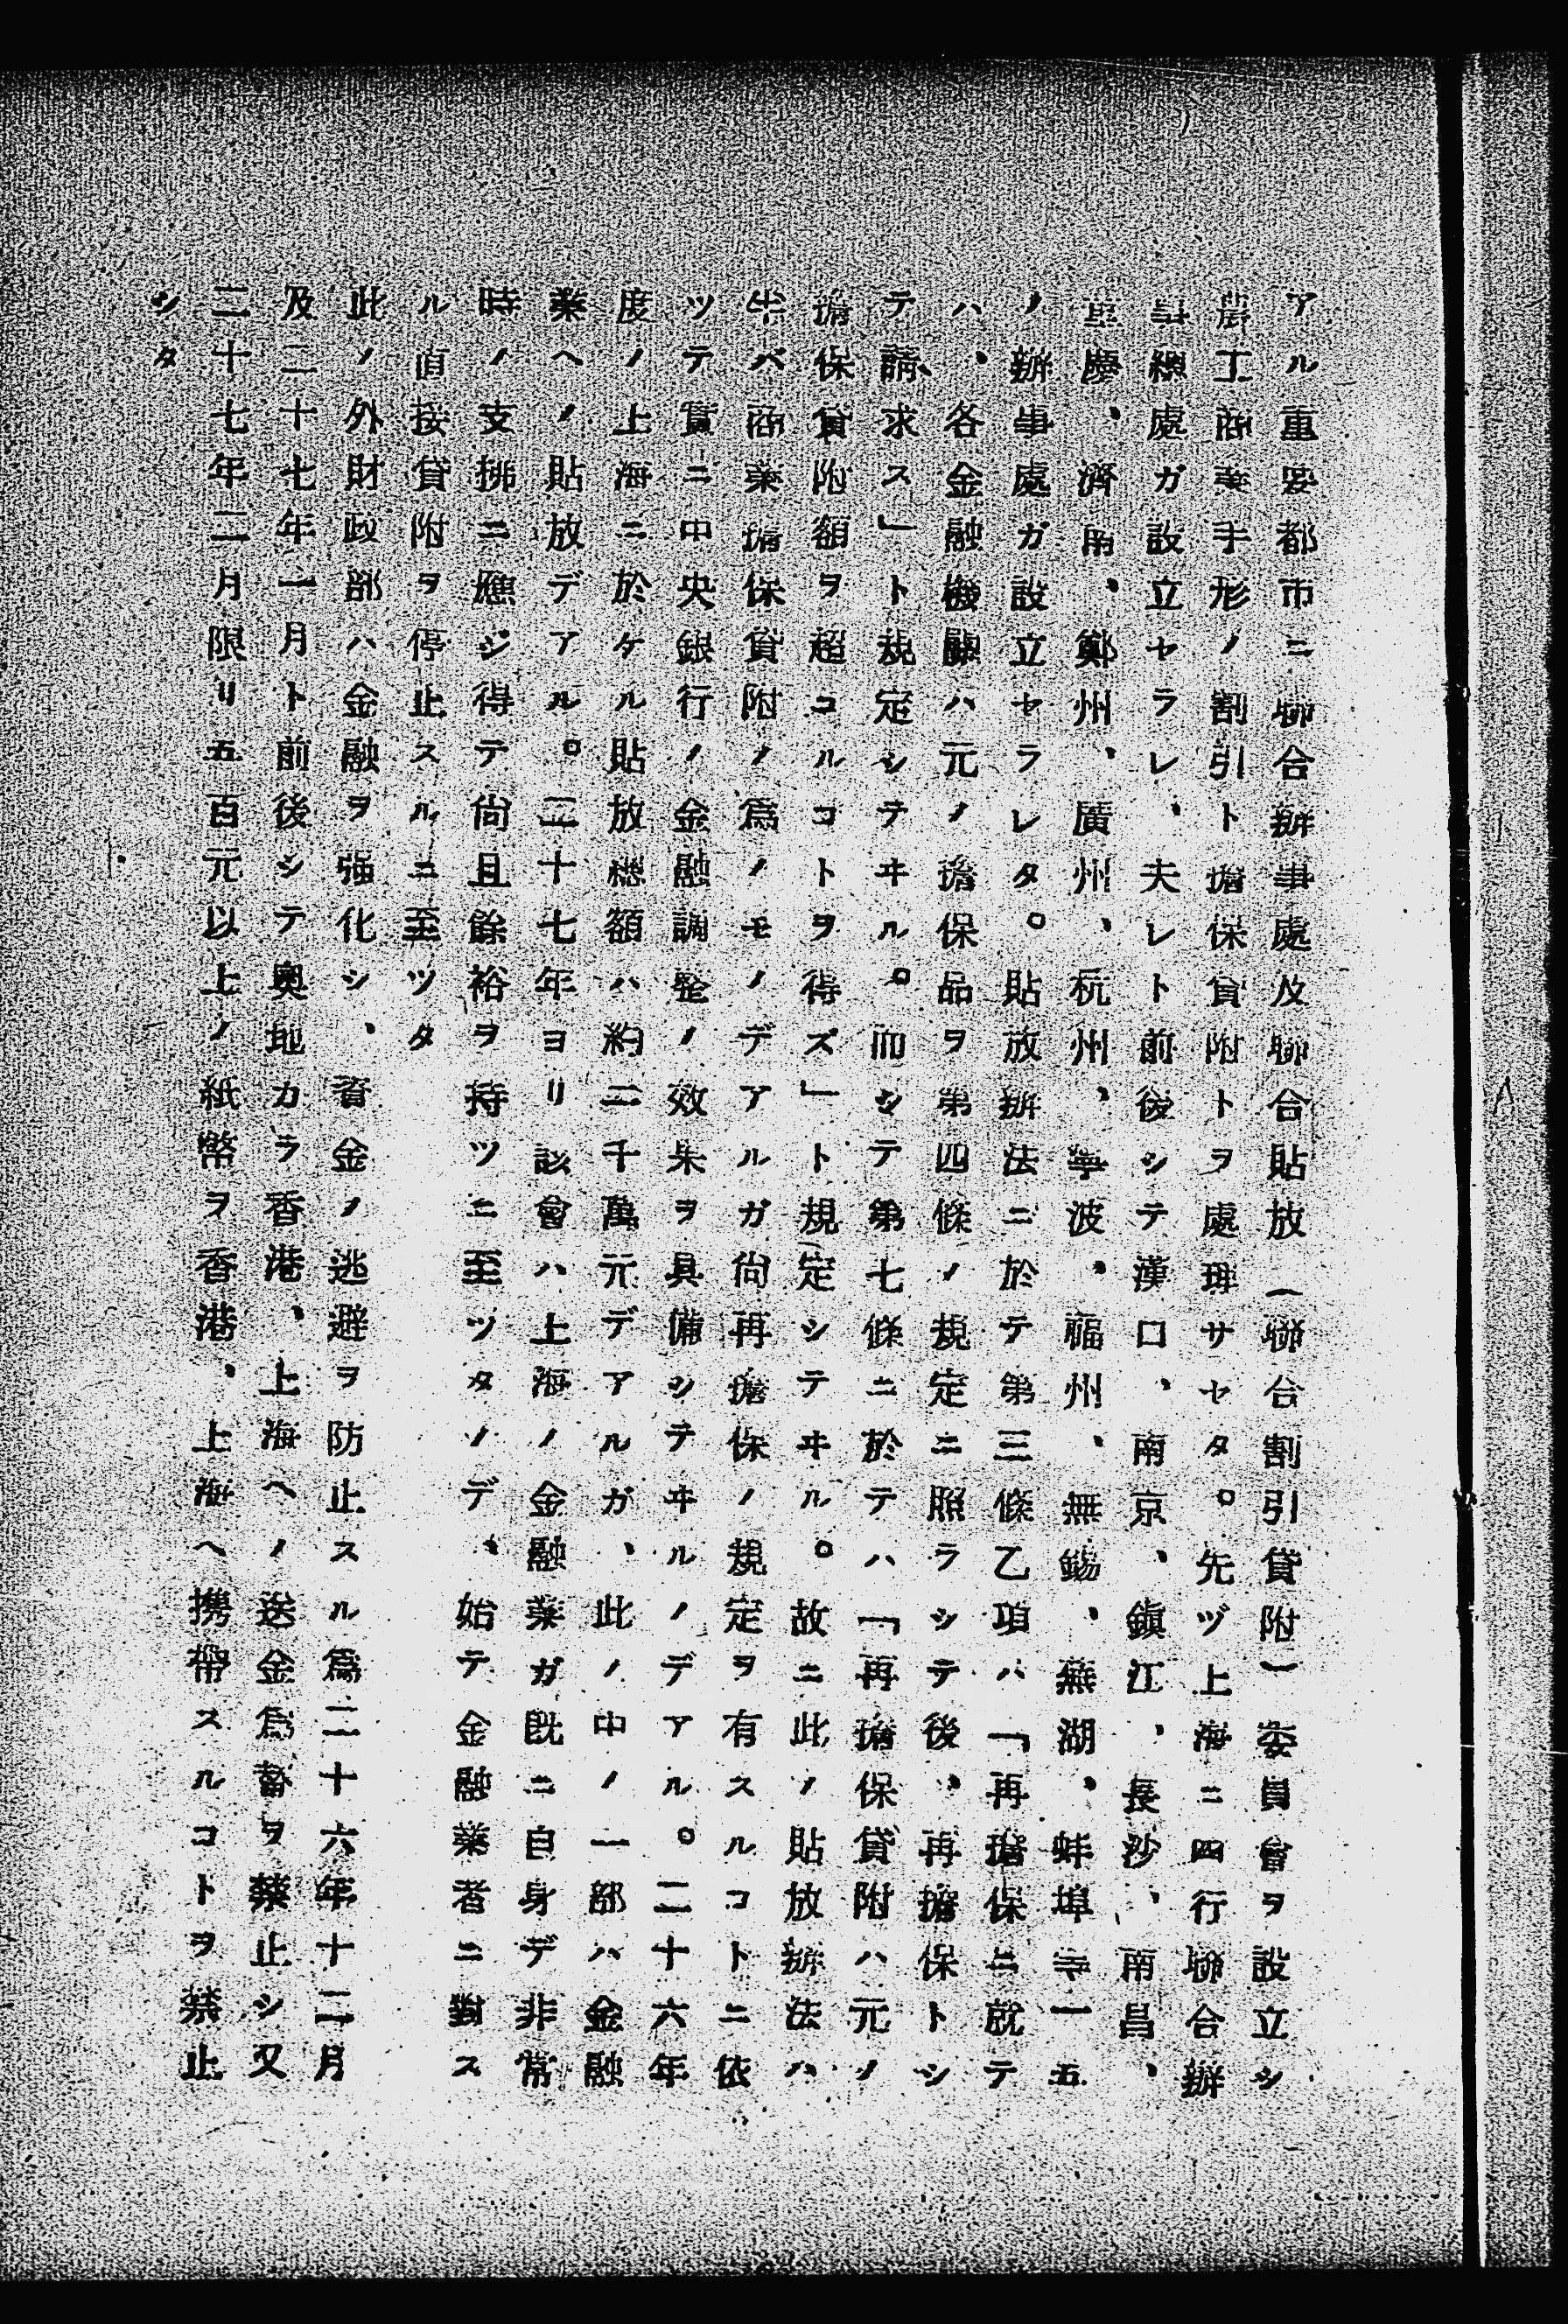 アル重要都市ニ聯合辦事處及聯合貼放(聯合割引貸附)委員會ヲ設立シ
農工商業手形ノ割引ト擔保貸附トヲ處理サセタ。先ヅ上海ニ四行聯合辦
事總處ガ設立セラレ、夫レト前後シテ漢口、南京、鎭江、長沙、南昌、
重慶、濟南、鄭州、廣州、杭州、寧波、福州、無錫、蕪湖、蚌埠等一五
ノ辦事處ガ設立セラレタ。貼放辦法ニ於テ第三條乙項ハ「再擔保ニ就テ
ハ、各金融機關ハ元ノ擔保品ヲ第四條ノ規定ニ照ラシテ後、再擔保トシ
テ請求ス」ト規定シテヰル。而シテ第七條ニ於テハ「再擔保貸附ハ元ノ
擔保貸附額ヲ超コルコトヲ得ズ」ト規定シテヰル。故ニ此ノ貼放辦法ハ
半バ商業擔保貸附ノ爲ノモノデアルガ尙再擔保ノ規定ヲ有スルコトニ依
ツテ實ニ中央銀行ノ金融調整ノ效果ヲ具備シテヰルノデアル。二十六年
度ノ上海ニ於ケル貼放總額ハ約二千萬元デアルガ、此ノ中ノ一部ハ金融
業ヘノ貼放デアル。二十七年ヨリ該會ハ上海ノ金融業ガ既ニ自身デ非常
時ノ支拂ニ應ジ得テ尙且餘裕ヲ持ツニ至ツタノデ、始テ金融業者ニ對ス
ル直接貸附ヲ停止スルニ至ツタ
此ノ外財政部ハ金融ヲ强化シ、資金ノ逃避ヲ防止スル爲二十六年十二月
及二十七年一月ト前後シテ奧地カラ香港、上海ヘノ送金爲替ヲ禁止シ又
二十七年二月限リ五百元以上ノ紙幣ヲ香港、上海ヘ携帶スルコトヲ禁止
シタ